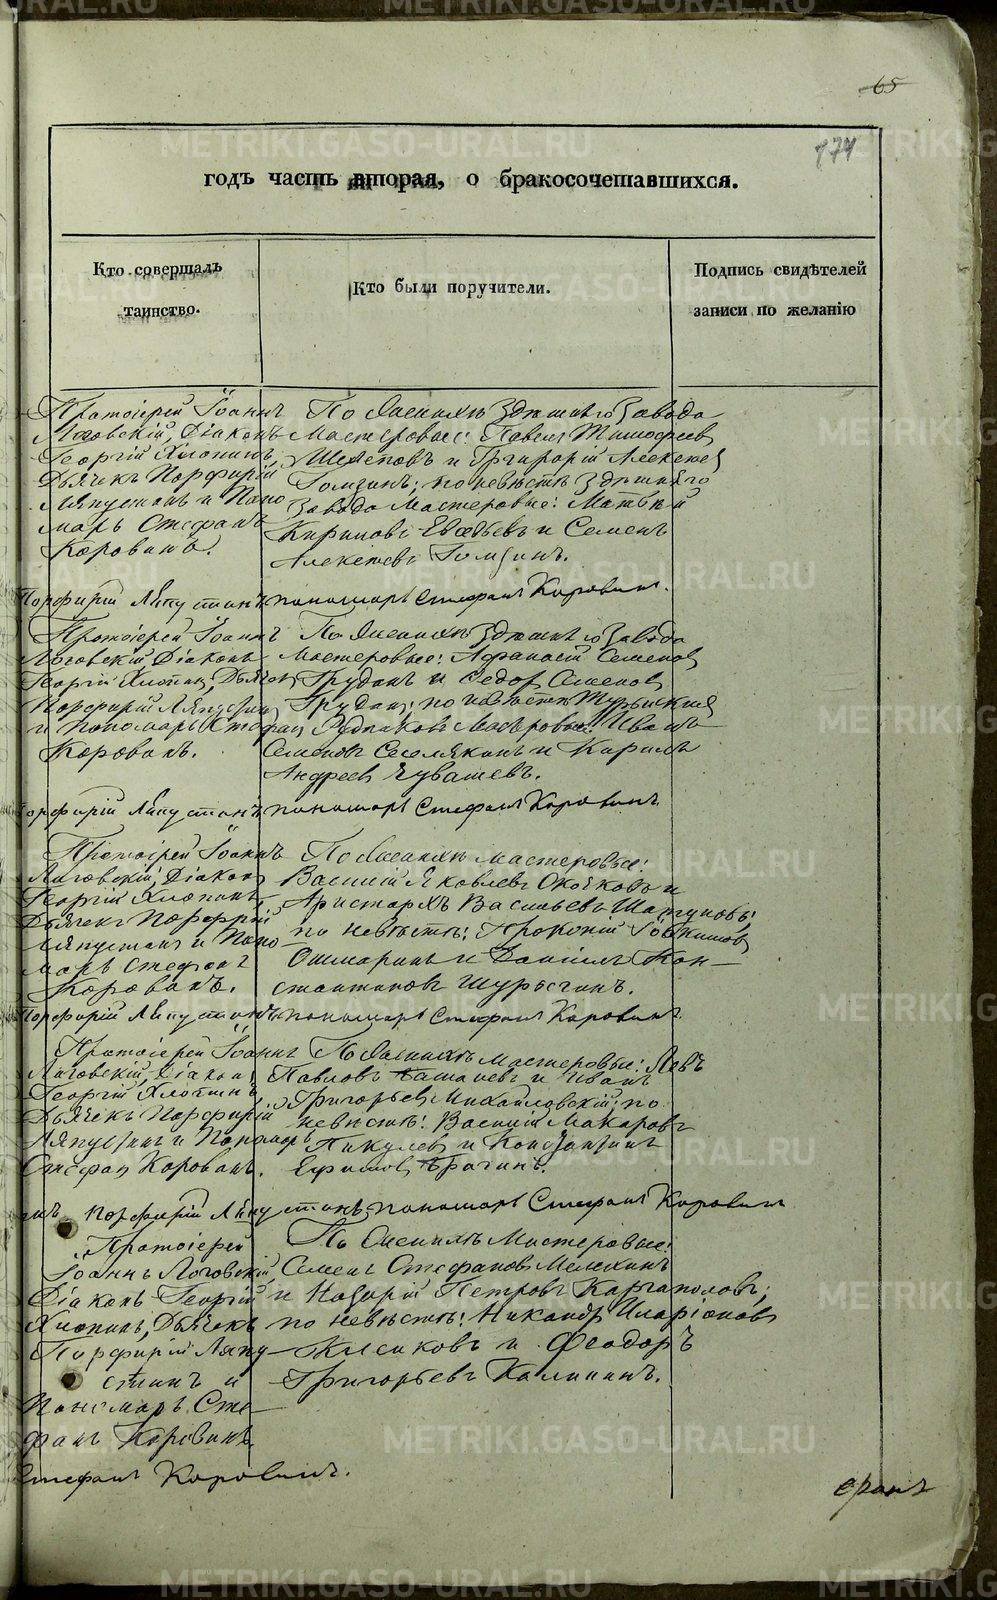 65
174
годъ часть вторая, о бракосочетавшихся.
Кто совершалъ
таинство.
Кто были поручители.
Подпись свидѣтелей
записи по желанію
Протоіерей Іоаннъ
Логовскій, Діаконъ
Георгій Хлопинъ,
Дьячекъ Порфирій
Ляпустинъ и Поно
марь Стефанъ
Коровинъ.
По женихѣ Здѣшняго Завода
Мастеровые: Павелъ Тимофеев
и Григорій Алексеев
Гомзинъ; по невѣстѣ Здѣшняго
Завода Мастеровые: Матвѣй
Кирилов и Семенъ
Алексѣевъ Гомзинъ.
Порфирій Ляпустинъ, пономарь Стефанъ Коровинъ.
Протоіерей Іоаннъ
Логовскій, Діаконъ
Георгій Хлопин, Дьячек
Порфирій Ляпустин
и пономарь Стефан
Коровинъ.
По женихѣ Здѣшняго Завода
Мастеровые: Афанасій Семенов
и Федор Семенов
по невѣстѣ Турьинских
Рудников Мастеровые: Иванъ
Семеновъ и Кирилъ
Андреев Чувашевъ.
Порфирій Ляпустинъ, пономарь Стефанъ Коровинъ
Протоіерей Іоаннъ
Логовскій, Діакон
Георгій Хлопинъ,
Дьячекъ Порфирій
Ляпустинъ и Поно
марь Стефанъ
Коровинъ.
По женихѣ мастеровые:
Василій Яковлевъ и
Аристархъ Васильевъ
по невѣстѣ: Прокопій
Ошмаринъ и Даніилъ Кон-
стантиновъ
Порфирій Ляпустинъ, пономарь Стефанъ Коровинъ
Протоіерей Іоаннъ
Логовскій, Діакон
Георгій Хлопинъ,
Дьячекъ Порфирій
Ляпустинъ и Пономарь
Стефан Коровинъ.
По женихѣ Мастеровые: Левъ
Павловъ и Иванъ
Григорьевъ Михайловскій; по
невѣстѣ: Василій Макаровъ
Пикулев и Константинъ
Ефимов
Порфирій Ляпустинъ, пономарь Стефанъ Коровинъ
Протоіерей
Іоаннъ Логовскій,
Діаконъ Георгій
Хлопинъ, Дьячекъ
Порфирій Ляпу-
стинъ и
Пономарь Сте-
фанъ Коровинъ
По женихѣ Мастеровые:
Семенъ Стефановъ
и Назарій Петровъ Каргаполовъ;
по невѣстѣ: Никандр Иларіонов
и Феодоръ
Григорьевъ Калининъ.
Стефанъ Коровинъ.
METRIKI.GASO-URAL.RU